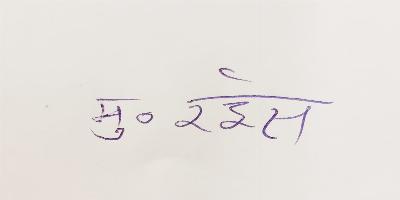 मु० रईस